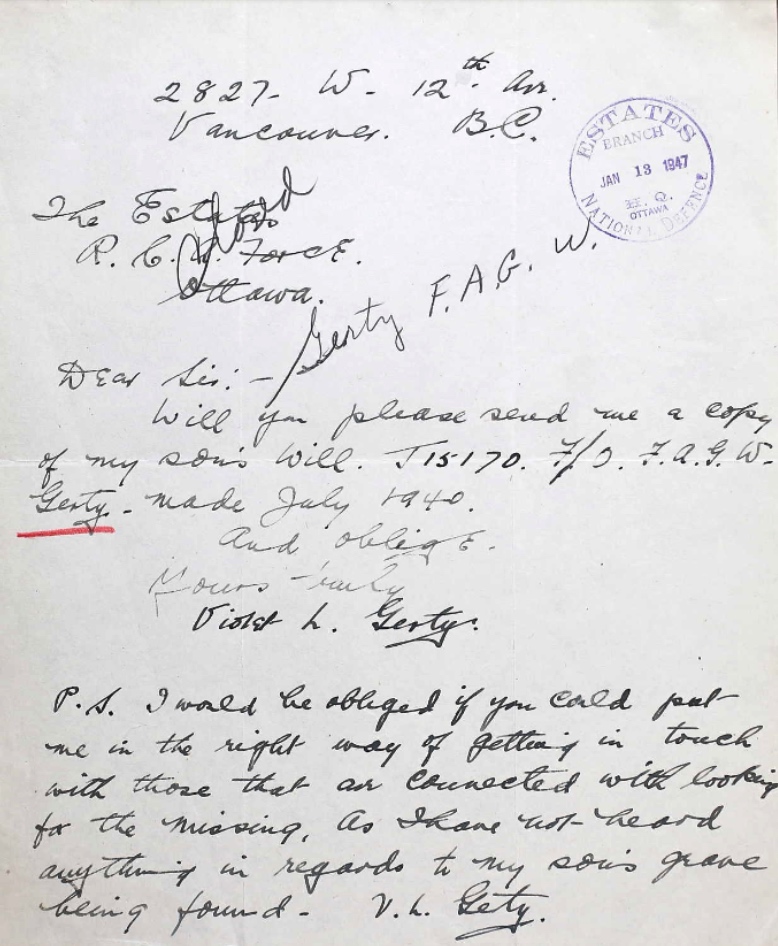 2827- W- 12th. Av.
Vancouver. B.C.
ESTATES
BRANCH
JAN 13 1947
H. Q.
OTTAWA
NATIONAL DEFENCE
The Estates
R. C. A. Force.
Ottawa.
Gerty F.A.G. W.
Dear Sir:-
Will you please send me a copy
of my son's Will. J15170. F/O. F.A.G.W-
Gerty. - made July 1940.
And oblige.
Yours truly
Violet L. Gerty.
P.S. I would be obliged if you could put
me in the right way of getting in touch
with those that are connected with looking
for the missing, As I have not heard
anything in regards to my son's grave
being found- V.L. Gerty.